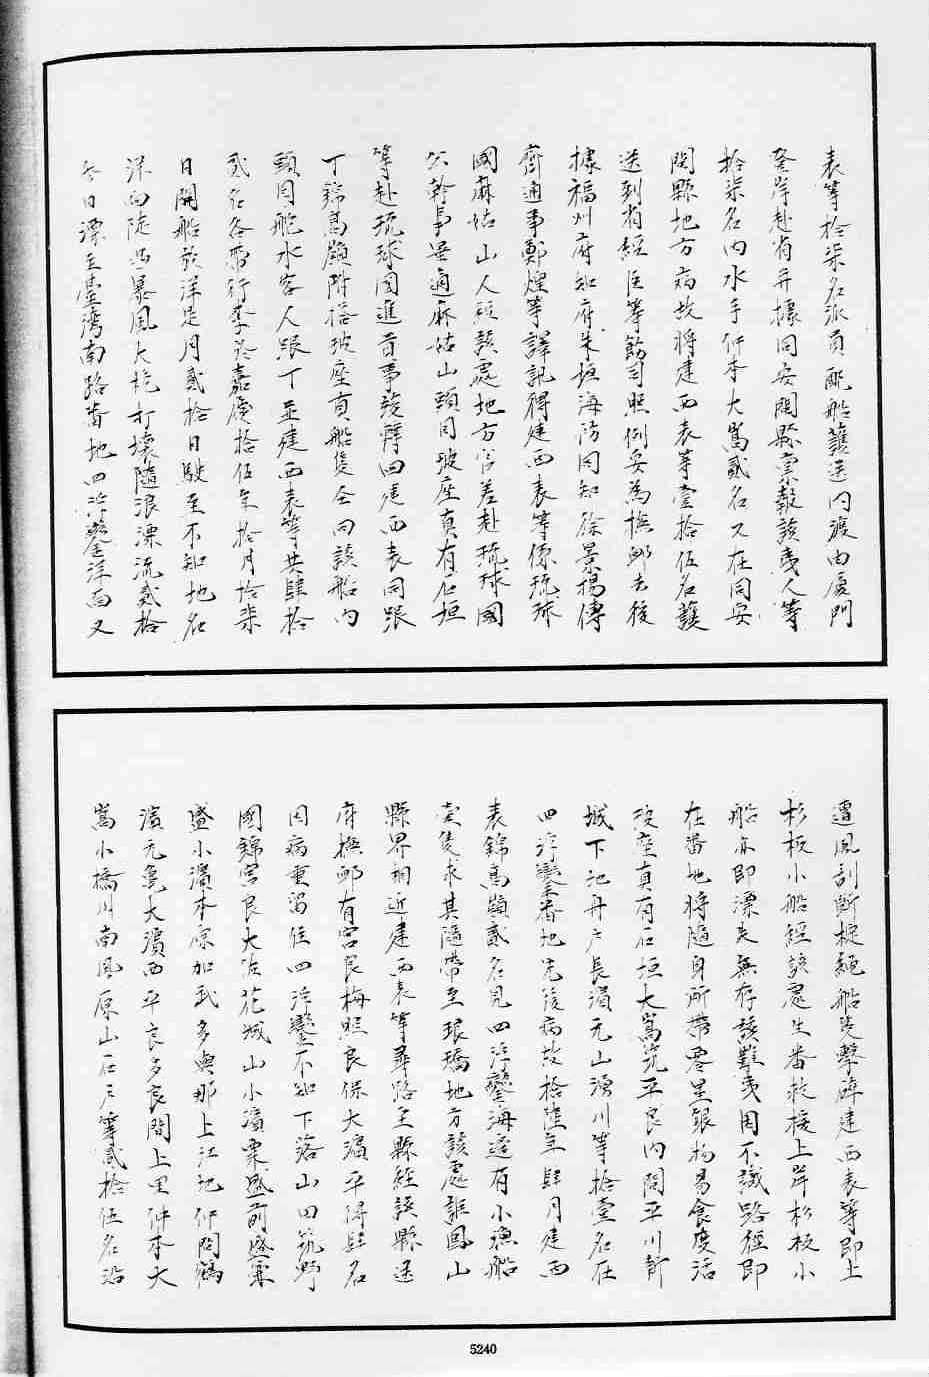 表等拾柒名派員配船護送內渡由廈門
登岸赴省并據同安閩縣稟報該夷人等
拾柒名內水手仔李大嵩貳名又在同安
閩縣地方病故將建西表等壹拾伍名護
送到省經臣等飭司照例妥為撫卹去後
據福州府知府朱桓海防同知徐景揚傳
齊通事鄭煌等譯訊得建西表等係琉球
國麻姑山人經該處地方官差赴琉球國
公幹事畢適麻姑山頭目坡座真有石垣
等赴琉球國進首事竣辭回建西表同跟
丁錦高嶺附搭坡座真船隻仝回該船內
頭目舵水客人跟丁並建西表等共肆拾
貳名各帶行李於嘉慶拾伍年拾月拾柒
日開船放洋是月貳拾日駛至不知地名
洋面陡遇暴風大桅打壞隨浪漂流貳拾
今日漂至臺灣南路番地四浮鑾洋面又
遭風刮斷椗繩船隻擊碎建西表等即上
杉板小船經該處生番救援上岸杉板小
船亦即漂失無存該難夷因不識路徑即
在番地將隨身所帶零星銀物易食度活
坡座真有石垣大嵩筑平良內間平川新
城下地舟戶長濱元山湧川等拾壹名在
四浮鑾番地先後病故拾陸年肆月建西
表錦高嶺貳名見四浮鑾海邊有小漁船
壹隻求其隨帶至瑯嶠地方該處詎鳳山
縣界相近建西表等尋路至縣經該縣送
府撫卹有宮良梅照良保大濱平得肆名
因病重留住四浮鑾不知下落山田筑野
國錦宮良大浜花城山小濱粟盛前盛宗
盛小濱本原加武多與那上江地仲間鶴
濱元龜大濱西平良多良間上里仲本大
嵩小橋川南風原山石戶等貳拾伍名沿
5240